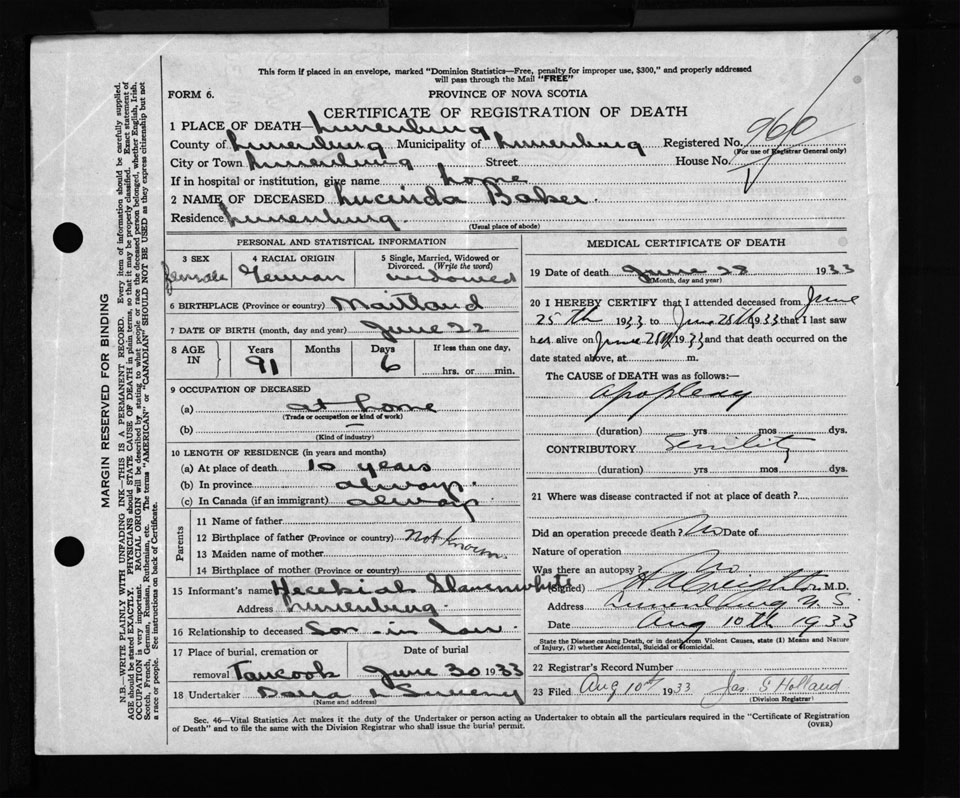 This form if placed in an envelope, marked "Dominion Statistics—Free, penalty for improper use, $300," and properly addressed
will pass through the Mail "FREE"
FORM 6. PROVINCE OF NOVA SCOTIA
CERTIFICATE OF REGISTRATION OF DEATH
1 PLACE OF DEATH— Lunenburg
County of Lunenburg Municipality of Lunenburg Registered No. 960
(For use of Registrar General only)
City or Town Lunenburg Street House No.
If in hospital or institution, give name home
2 NAME OF DECEASED Lucinda Baker.
Residence Lunenburg.
(Usual place of abode)
PERSONAL AND STATISTICAL INFORMATION
3 SEX 4 RACIAL ORIGIN 5 Single, Married, Widowed or
Divorced. (Write the word)
female German widowed
6 BIRTHPLACE (Province or country) Maitland
7 DATE OF BIRTH (month, day and year) June 22
8 AGE IN Years Months Days If less than one day,
91 6 hrs. or min.
9 OCCUPATION OF DECEASED
(a) at home
(Trade or occupation or kind of work)
(b)
(Kind of industry)
10 LENGTH OF RESIDENCE (in years and months)
(a) At place of death 10 years
(b) In province always.
(c) In Canada (if an immigrant) always
Parents
11 Name of father
12 Birthplace of father (Province or country) Not known.
13 Maiden name of mother
14 Birthplace of mother (Province or Country)
15 Informant's name Heckiah Slaunwhite
Address Lunenburg.
16 Relationship to deceased Son-in law.
17 Place of burial, cremation or Date of burial
removal Tancook June 30 1933
18 Undertaker
(Name and address)
MEDICAL CERTIFICATE OF DEATH
19 Date of death June 28 1933
(Month, day and year)
20 I HEREBY CERTIFY that I attended deceased from June
25th 1933 to June 28th 1933 that I last saw
her alive on June 28th 1933 and that death occurred on the
date stated above, at m.
The CAUSE of DEATH was as follows:—
apoplexy
(duration) yrs mos dys.
CONTRIBUTORY Senility
(duration) yrs mos dys.
21 Where was disease contracted if not at place of death?
Did an operation precede death? No Date of
Nature of operation
Was there an autopsy? No
(Signed) H A Creighton M.D.
Address Lunenburg N.S.
Date Aug 10th 1933
State the Disease causing Death, or in death from Violent Causes, state (1) Means and Nature
of Injury, (2) whether Accidental, Suicidal or Homicidal.
22 Registrar's Record Number
23 Filed Aug 10th 1933 Jas S Holland
(Division Registrar)
Sec. 46—Vital Statistics Act makes it the duty of the Undertaker or person acting as Undertaker to obtain all the particulars required in the "Certificate of Registration
of Death" and to file the same with the Division Registrar who shall issue the burial permit. (OVER)
MARGIN RESERVED FOR BINDING
N.B.—WRITE PLAINLY WITH UNFADING INK—THIS IS A PERMANENT RECORD. Every item of information should be carefully supplied.
AGE should be stated EXACTLY. PHYSICIANS should STATE CAUSE OF DEATH in plain terms, so that it may be properly classified. Exact statement of
OCCUPATION is very important. RACIAL ORIGIN will be described by stating to what people or race the deceased person belonged, whether English, Irish,
Scotch, French, German, Russian, Ruthenian, etc. The terms "AMERICAN" or "CANADIAN" SHOULD NOT BE USED as they express citizenship but not
a race or people. See instructions on back of Certificate.